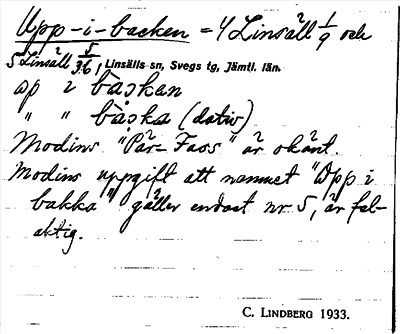 Upp-i-backen = 4 Linsäll 1/9 och
5 Linsäll 5/36, Linsälls sn, Svegs tg, Jämtl. län.
åp i båckan
" " båcka (dativ)
Modins "Pär-Fass" är okänt.
Modins uppgift att namnet "Opp i
bakka" gäller endast nr 5, är fel-
aktig.
C. LINDBERG 1933.